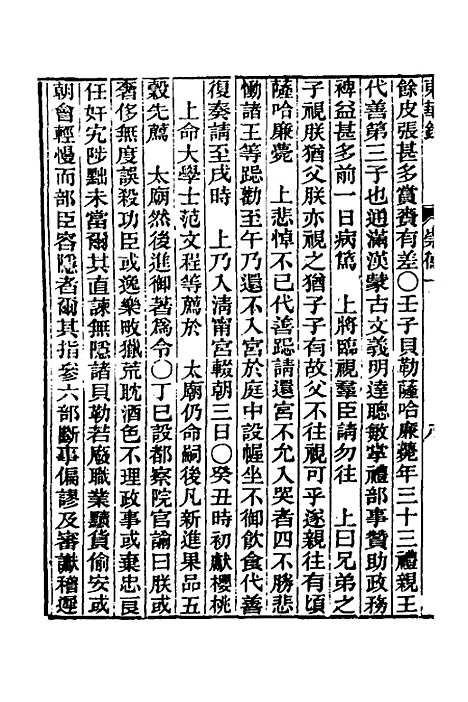 東華錄 崇德一 八
餘皮張甚多賞賚有差〇壬子貝勒薩哈廉薨年三十三禮親王
代善第三子也通滿漢蒙古文義明達聰敏掌禮部事贊助政務
裨益甚多前一日病篤 上將臨視羣臣請勿往 上曰兄弟之
子視朕猶父朕亦視之猶子子有故父不往視可乎遂親往有頃
薩哈廉薨 上悲悼不已代善跽請還宮不允入哭者四不勝悲
慟諸王等跽勸至午乃還不入宮於庭中設幄坐不御飲食代善
復奏請至戌時 上乃入淸甯宮輟朝三日〇癸丑時初獻櫻桃
上命大學士范文程等薦於 太廟仍命嗣後凡新進果品五
穀先薦 太廟然後進御著爲令〇丁巳設都察院官諭曰朕或
奢侈無度誤殺功臣或逸樂畋獵荒耽酒色不理政事或棄忠良
任奸宄陟黜未當爾其直諫無隱諸貝勒若廢職業黷貨偷安或
朝會輕慢而部臣容隱者爾其指參六部斷事偏謬及審讞稽遲